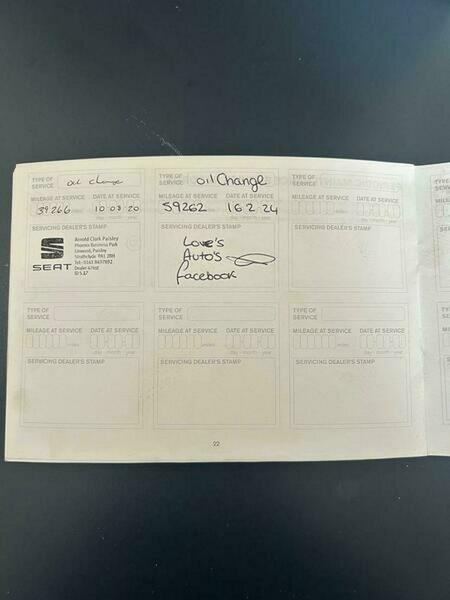 TYPE OF SERVICE oil change
MILEAGE AT SERVICE DATE AT SERVICE
39266 miles 10 03 20
SERVICING DEALER'S STAMP
SEAT
Arnold Clark Paisley
Phoenix Business Park
Linwood, Paisley
Strathclyde PA1 2BH
TYPE OF SERVICE oil Change
MILEAGE AT SERVICE DATE AT SERVICE
59262 16 2 24
SERVICING DEALER'S STAMP
Love's
Auto's
facebook
TYPE OF SERVICE
MILEAGE AT SERVICE DATE AT SERVICE
miles day - month - year
SERVICING DEALER'S STAMP
TYPE OF SERVICE
MILEAGE AT SERVICE DATE AT SERVICE
miles day - month - year
SERVICING DEALER'S STAMP
TYPE OF SERVICE
MILEAGE AT SERVICE DATE AT SERVICE
miles day - month - year
SERVICING DEALER'S STAMP
TYPE OF SERVICE
MILEAGE AT SERVICE DATE AT SERVICE
miles day - month - year
SERVICING DEALER'S STAMP
22